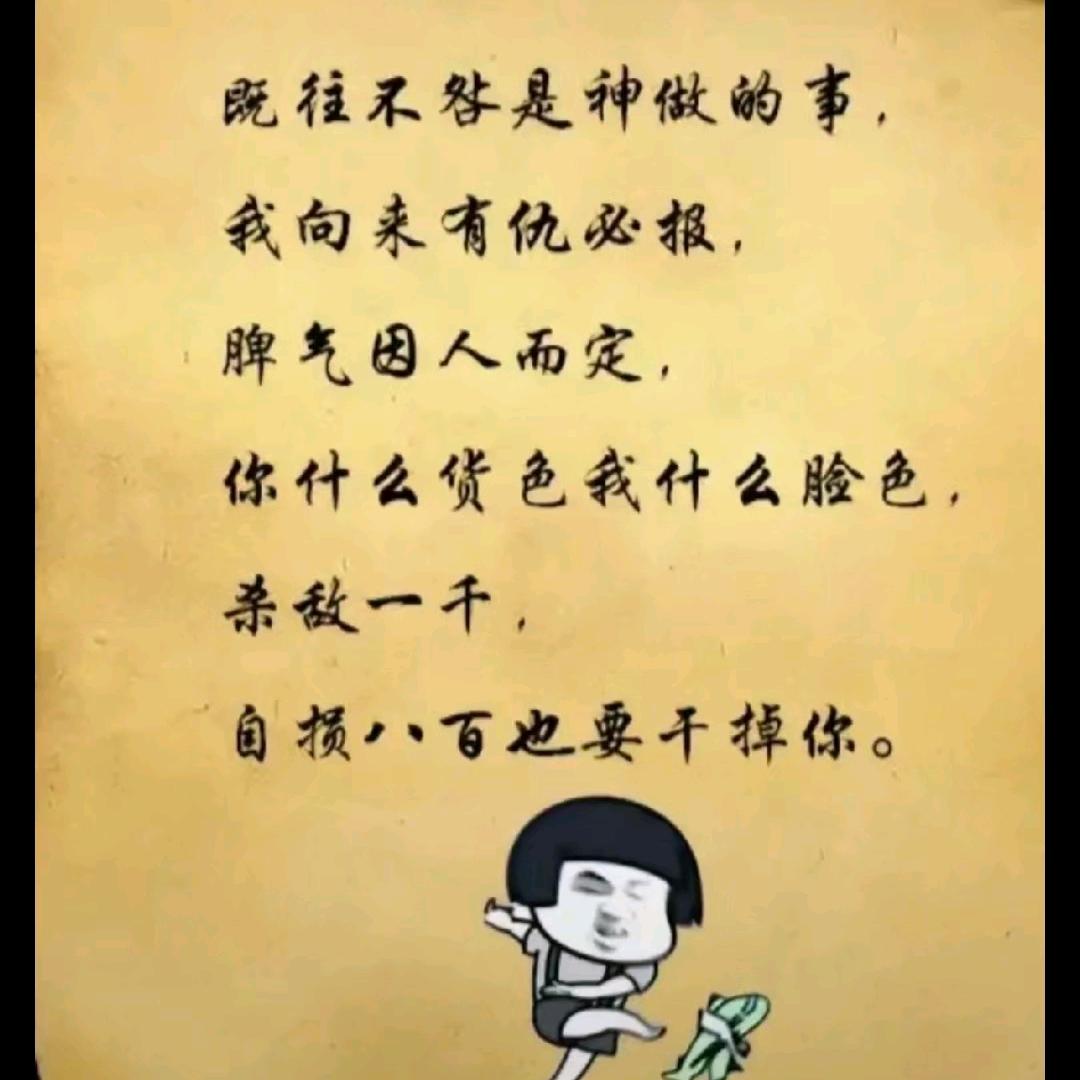 既往不咎是神做的事，
我向来有仇必报，
脾气因人而定，
你什么货色我什么脸色，
杀敌一千，
自损八百也要干掉你。